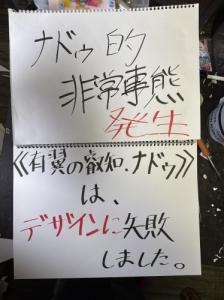 ナドゥ的
非常事態
発生
《有翼の叡知、ナドゥ》
は、
デザインに失敗
しました。